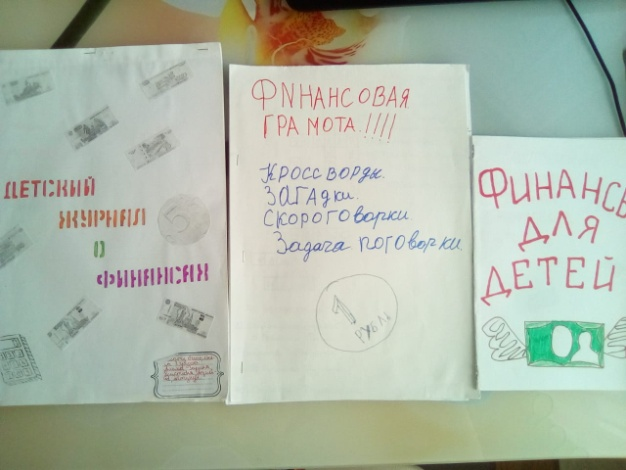 ДЕТСКИЙ
ЖУРНАЛ
О
ФИНАНСАХ
5
ФИНАНСОВАЯ
ГРАМОТА!!!!
Кроссворды.
ЗАГАДКИ.
СКОРОГОВОРКИ
Задача поговорки
1
РУБЛЬ
ФИНАНСЫ
ДЛЯ
ДЕТЕЙ